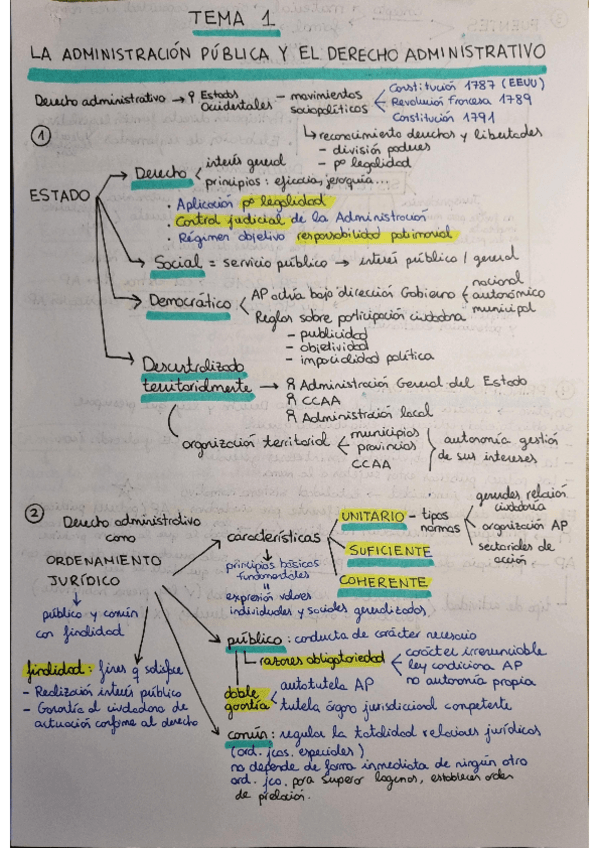 TEMA 1
LA ADMINISTRACIÓN PÚBLICA Y EL DERECHO ADMINISTRATIVO
Derecho administrativo → Estados Occidentales – movimientos sociopolíticos
Constitución 1787 (EEUU)
Revolución francesa 1789
Constitución 1791
↳ reconocimiento derechos y libertades
– división poderes
– pº legalidad
①
ESTADO
Derecho
interés general
principios: eficacia, jerarquía...
· Aplicación pº legalidad
· Control judicial de la Administración
· Régimen objetivo responsabilidad patrimonial
Social = servicio público → interés público / general
Democrático
AP actúa bajo dirección Gobierno
nacional
autonómico
municipal
Reglas sobre participación ciudadana
– publicidad
– objetividad
– imparcialidad política
Descentralizado
territorialmente
Administración General del Estado
CCAA
Administración local
organización territorial
municipios
provincias
CCAA
autonomía gestión
de sus intereses
②
Derecho administrativo
como
ORDENAMIENTO
JURÍDICO
↓
público y común
con finalidad
características
↓
principios básicos
fundamentales
=
expresión valores
individuales y sociales generalizados
UNITARIO – tipos normas
generales relación
ciudadanía
organización AP
sectoriales de
acción
SUFICIENTE
COHERENTE
finalidad: fines q satisface
– Realización interés público
– Garantía al ciudadano de
actuación conforme al derecho
público: conducta de carácter necesario
razones obligatoriedad
carácter irrenunciable
ley condiciona AP
no autonomía propia
doble
garantía
autotutela AP
tutela órgano jurisdiccional competente
común: regular la totalidad relaciones jurídicas
(ord. jcos. especiales)
no depende de forma inmediata de ningún otro
ord. jco. para superar lagunas, establecer orden
de prelación.